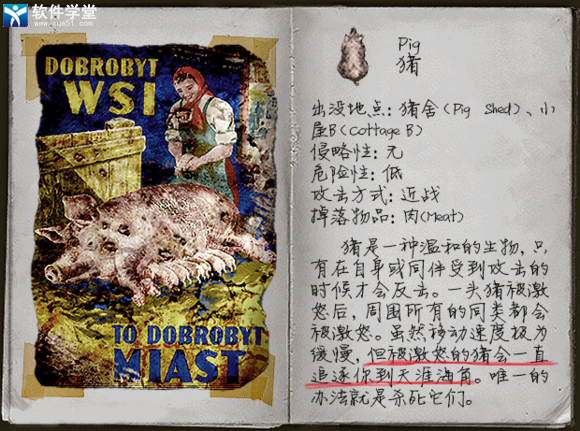 软件学堂
www.xue51.com
DOBROBYT
WSI
TO DOBROBYT
MIAST
Pig
猪
出没地点：猪舍(Pig Shed)、小
屋B(Cottage B)
侵略性：无
危险性：低
攻击方式：近战
掉落物品：肉(Meat)
猪是一种温和的生物，只
有在自身或同伴受到攻击的
时候才会反击。一头猪被激
怒后，周围所有的同类都会
被激怒。虽然移动速度极为
缓慢，但被激怒的猪会一直
追逐你到天涯海角。唯一的
办法就是杀死它们。